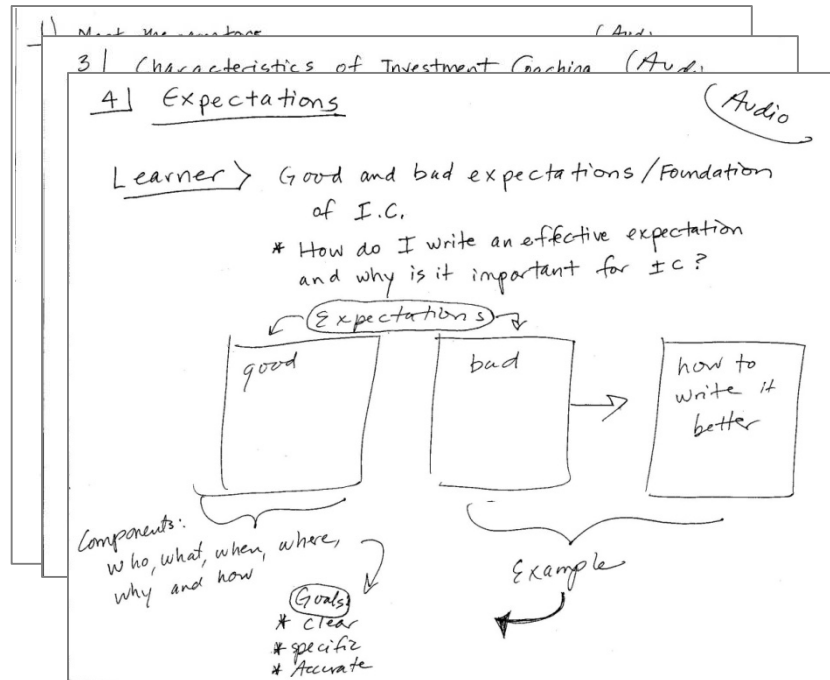 1)
3) Characteristics of Investment Coaching (Aud
4) Expectations
(Audio
Learner > Good and bad expectations/Foundation
of I.C.
* How do I write an effective expectation
and why is it important for IC?
Expectations
good
bad
how to
write it
better
Components:
who, what, when, where,
why and how
Example
Goals:
* clear
* specific
* Accurate